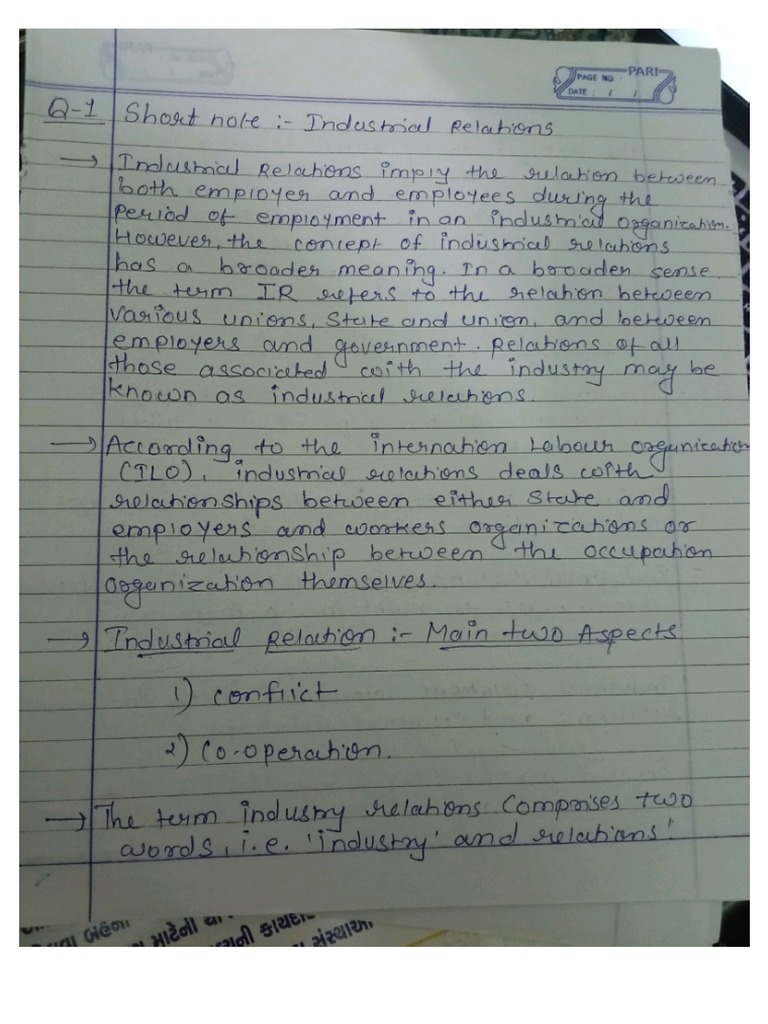 PARI
PAGE NO.
DATE : / /
Q-1 Short note :- Industrial Relations
→ Industrial Relations imply the relation between
both employer and employees during the
Period of employment in an industrial organization.
However, the concept of industrial relations
has a broader meaning. In a broader sense
the term IR refers to the relation between
various unions, State and union, and between
employers and government. Relations of all
those associated with the industry may be
known as industrial relations.
→ According to the internation Labour organization
(ILO), industrial relations deals with
relationships between either State and
employers and workers organizations or
the relationship between the occupation
orgenization themselves.
→ Industrial Relation :- Main two Aspects
1) conflict
2) Co-operation.
→ The term industry relations Comprises two
words, i.e. 'industry' and relations'
બંહેના
માટેની
ની કાયદા
સંસ્થાઓ.